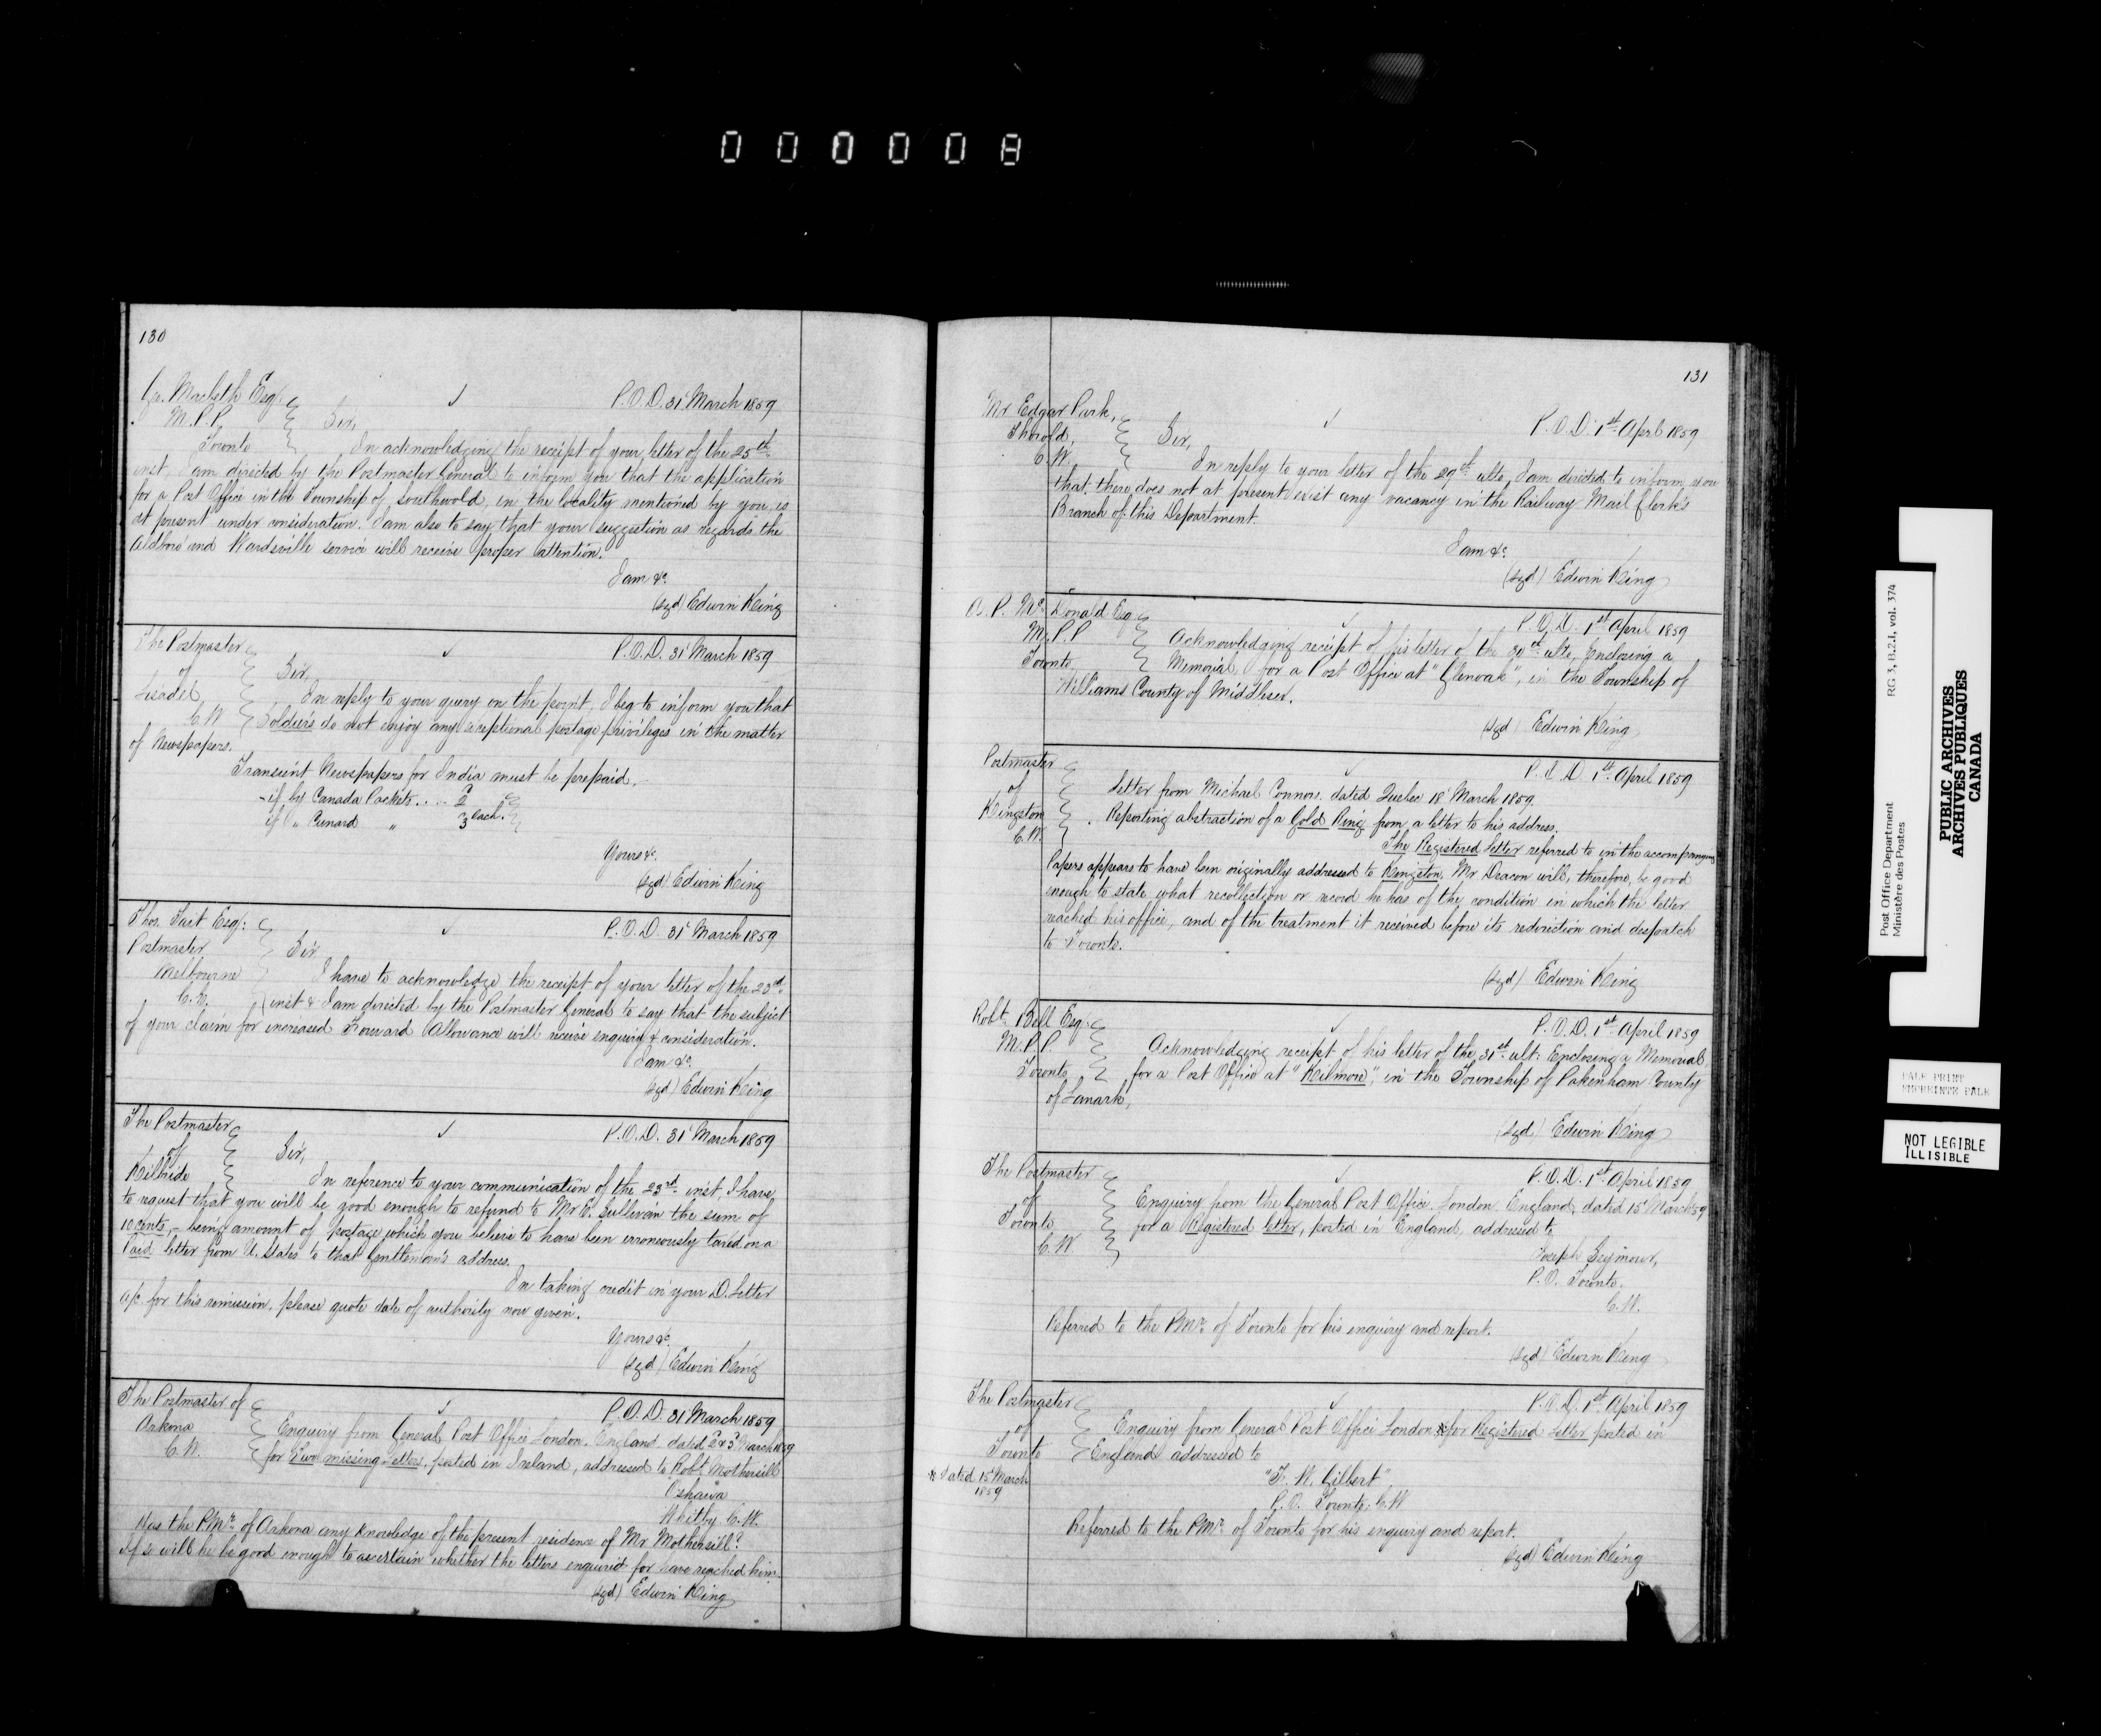 000008
130
Geo. Macbeth Esq.
M.P.P.
Toronto
P.O.D. 31 March 1859
Sir,
In acknowledging the receipt of your letter of the 25th
inst, I am directed by the Postmaster General to inform you that the application
for a Post Office in the Township of Southwold, in the locality mentioned by you, is
at present under consideration. I am also to say that your suggestion as regards the
Aldboro' and Wardsville service will receive proper attention.
I am &c.
(sgd) Edwin King
The Postmaster
of
C.W.
P.O.D. 31 March 1859
Sir,
In reply to your query on the point, I beg to inform you that
Soldiers do not enjoy any exceptional postage privileges in the matter
of Newspapers.
Transient Newspapers for India must be prepaid.
- if by Canada Packets .... 2
if " Cunard " 3 each.
Yours &c.
(sgd) Edwin King
Thos. Tait Esq:
Postmaster
Melbourne
C.E.
P.O.D. 31 March 1859
Sir
I have to acknowledge the receipt of your letter of the 23rd
inst & I am directed by the Postmaster General to say that the subject
of your claim for increased Forward Allowance will receive enquiry & consideration.
I am &c.
(sgd) Edwin King
The Postmaster
of
Kilbride
P.O.D. 31 March 1859
Sir,
In reference to your communication of the 23rd inst, I have
to request that you will be good enough to refund to Mr E. Sullivan the sum of
10 cents, - being amount of postage which you believe to have been erroneously taxed on a
Paid letter from U. States to that Gentleman's address.
In taking credit in your D. Letter
a/c. for this remission, please quote date of authority now given.
Yours &c.
(sgd) Edwin King
The Postmaster of
Arkona
C.W.
P.O.D. 31 March 1859
Enquiry from General Post Office London, England dated 2 & 3 March 1859
for Two missing Letters, posted in Ireland, addressed to Robt. Mothersill
Oshawa
Whitby C.W.
Has the P.Mr. of Arkona any knowledge of the present residence of Mr Mothersill?
If so will he be good enough to ascertain whether the letters enquired for have reached him.
(sgd) Edwin King
131
Mr Edgar Park,
Thorold,
C.W.
P.O.D. 1st April 1859
Sir,
In reply to your letter of the 29th ulto, I am directed to inform you
that there does not at present exist any vacancy in the Railway Mail Clerk's
Branch of this Department.
I am &c.
(sgd) Edwin King
A. P. McDonald Esq
M.P.P
Toronto
P.O.D. 1st April 1859
Acknowledging receipt of his letter of the 30th ulto, Enclosing a
Memorial for a Post Office at "Glenoak", in the Township of
Williams County of Middlesex.
(sgd) Edwin King
Postmaster
of
Kingston
C.W.
P.O.D. 1st April 1859
Letter from Michael Connors. dated Quebec 18 March 1859.
Reporting abstraction of a Gold Ring from a letter to his address.
The Registered Letter referred to in the accompanying
Papers appears to have been originally addressed to Kingston, Mr Deacon will, therefore, be good
enough to state what recollection or record he has of the condition in which the letter
reached his office, and of the treatment it received before its redirection and despatch
to Toronto.
(sgd) Edwin King
Robt. Bell Esq.
M.P.P.
Toronto
P.O.D. 1st April 1859
Acknowledging receipt of his letter of the 31st ult: Enclosing a Memorial
for a Post Office at "Kilmore", in the Township of Pakenham County
of Lanark,
(sgd) Edwin King
The Postmaster
of
Toronto
C.W.
P.O.D. 1st April 1859
Enquiry from the General Post Office, London England, dated 15 March 59
for a Registered Letter, posted in England, addressed to
Joseph Seymour,
P.O. Toronto.
C.W.
Referred to the P.Mr. of Toronto for his enquiry and report.
(sgd) Edwin King
The Postmaster
of
Toronto
P.O.D. 1st April 1859
Enquiry from General Post Office London * for Registered Letter posted in
England addressed to
* Dated 15 March
1859
"F. N. Gilbert"
P.O. Toronto, C.W
Referred to the P.Mr. of Toronto for his enquiry and report.
(sgd) Edwin King
Post Office Department
Ministère des Postes
RG 3, B.2.I, vol. 374
PUBLIC ARCHIVES
ARCHIVES PUBLIQUES
CANADA
PALE PRINT
IMPRIMÉE PALE
NOT LEGIBLE
ILLISIBLE